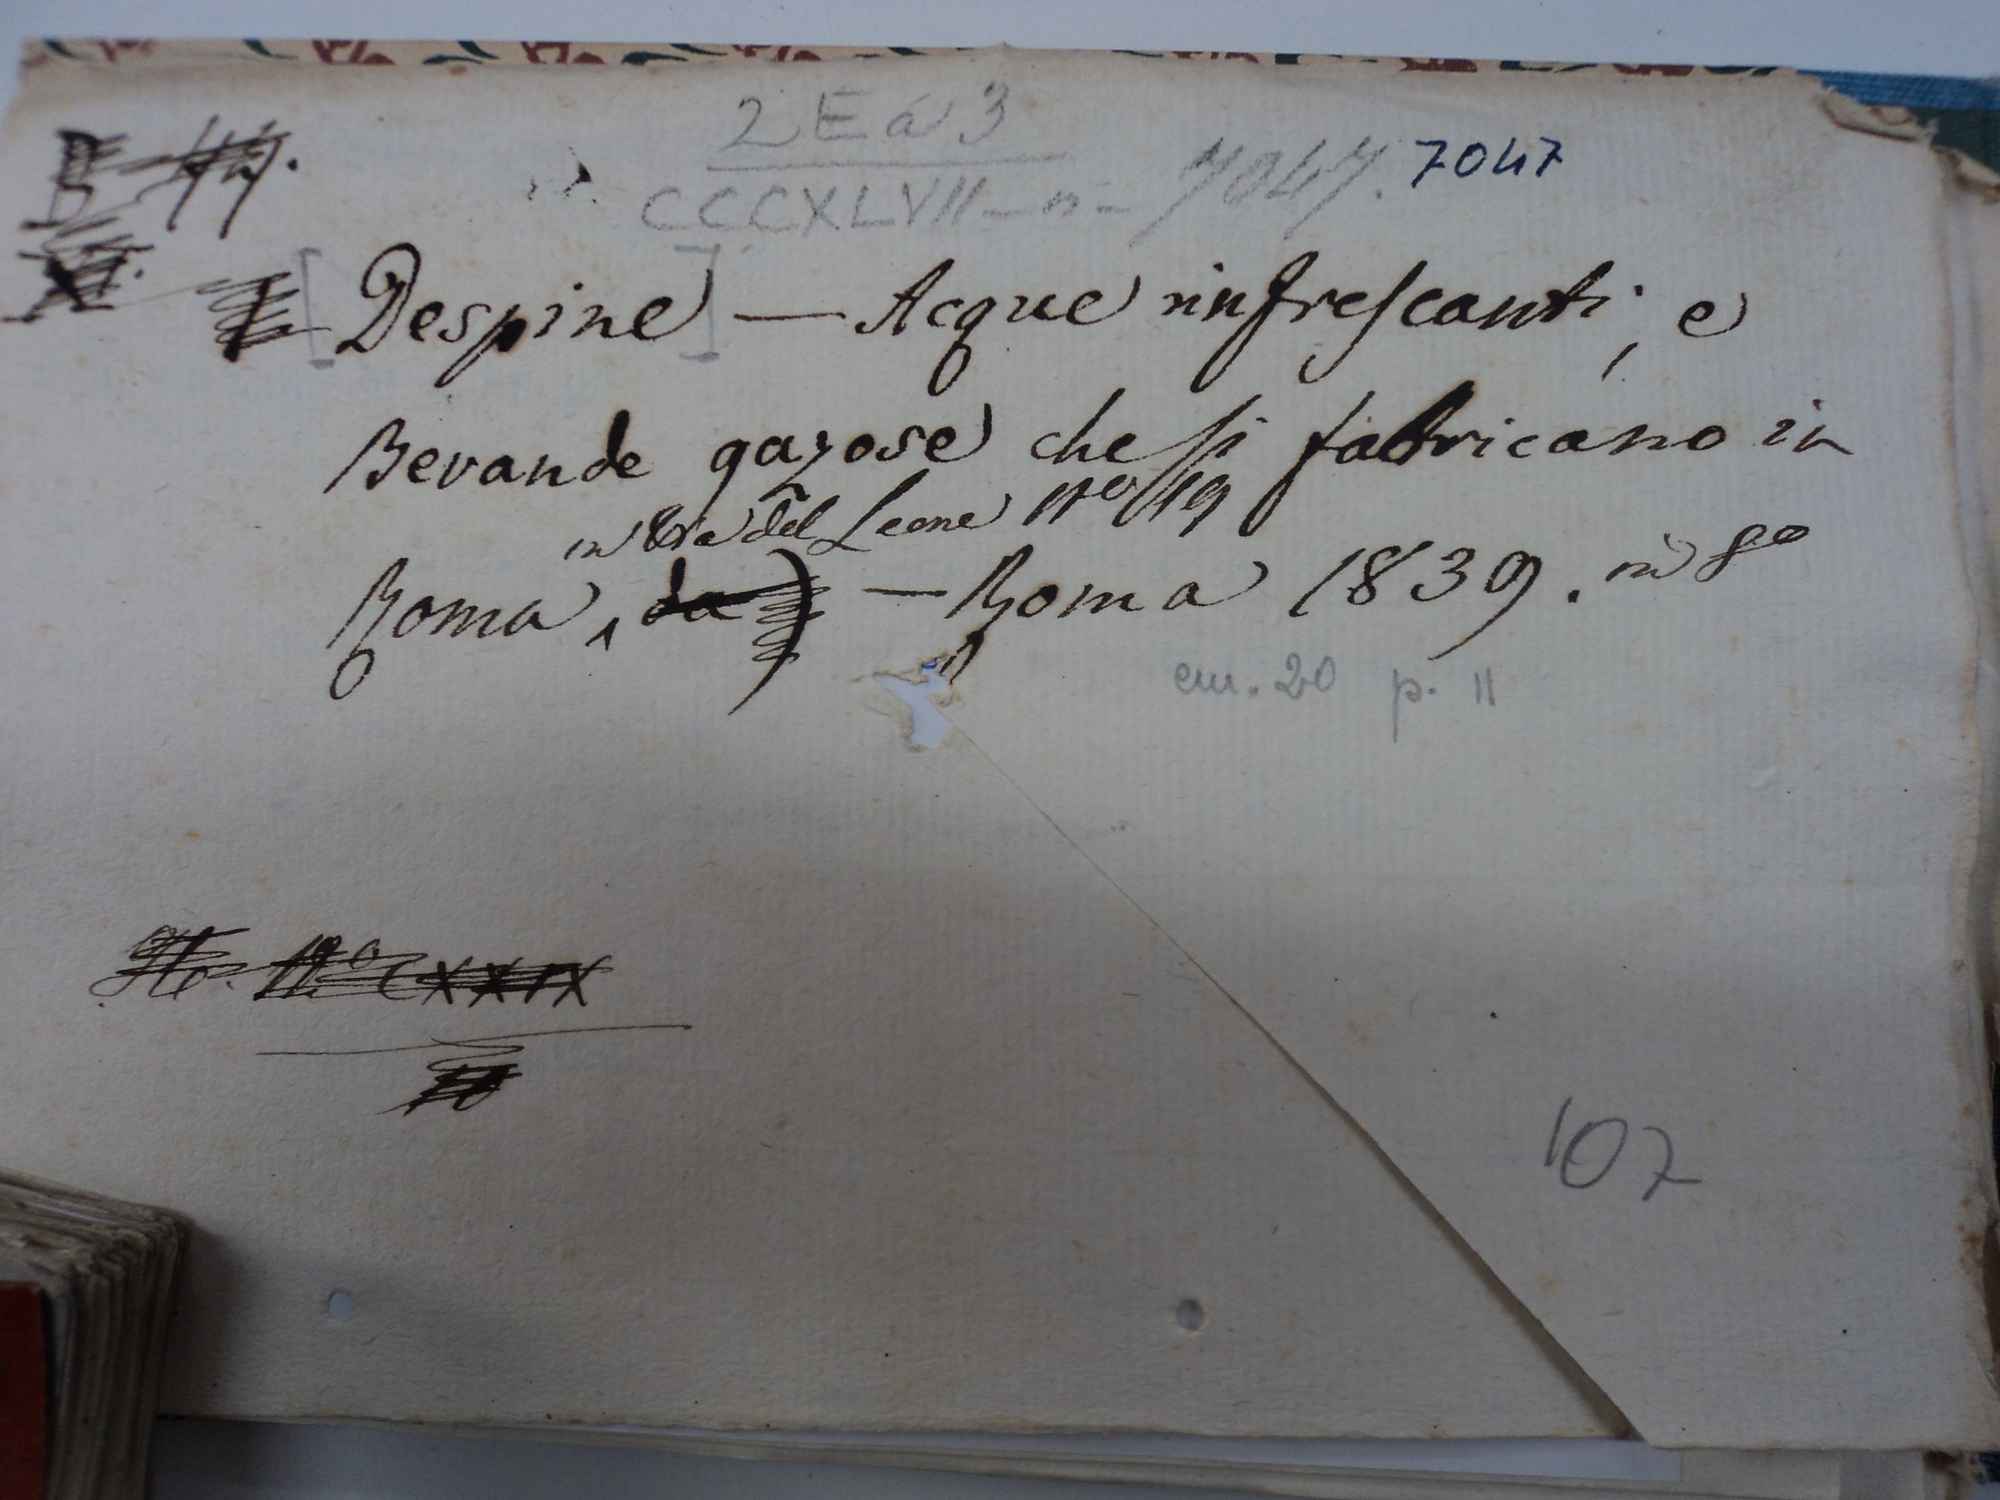 2 E a 3
CCCXLVII - n - 7047. 7047
[Despine] — Acque rinfrescanti, e
Bevande gazose che si fabricano in
in Via del Leone nº 19
Roma, da — Roma 1839. in 8º
cm. 20 p. 11
CXXIX
107